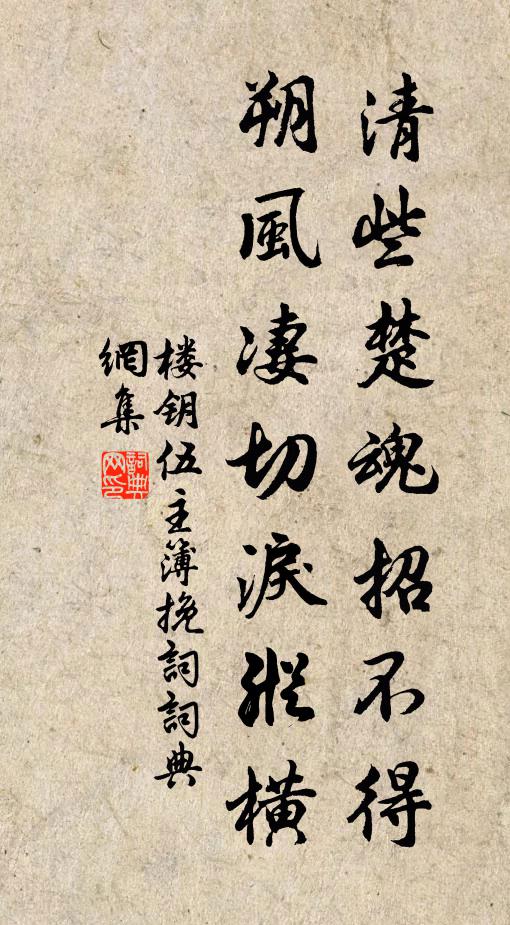 清些楚魂招不得
朔風淒切淚縱橫
楼钥伍主簿挽詞詞典
網集
詞典網印